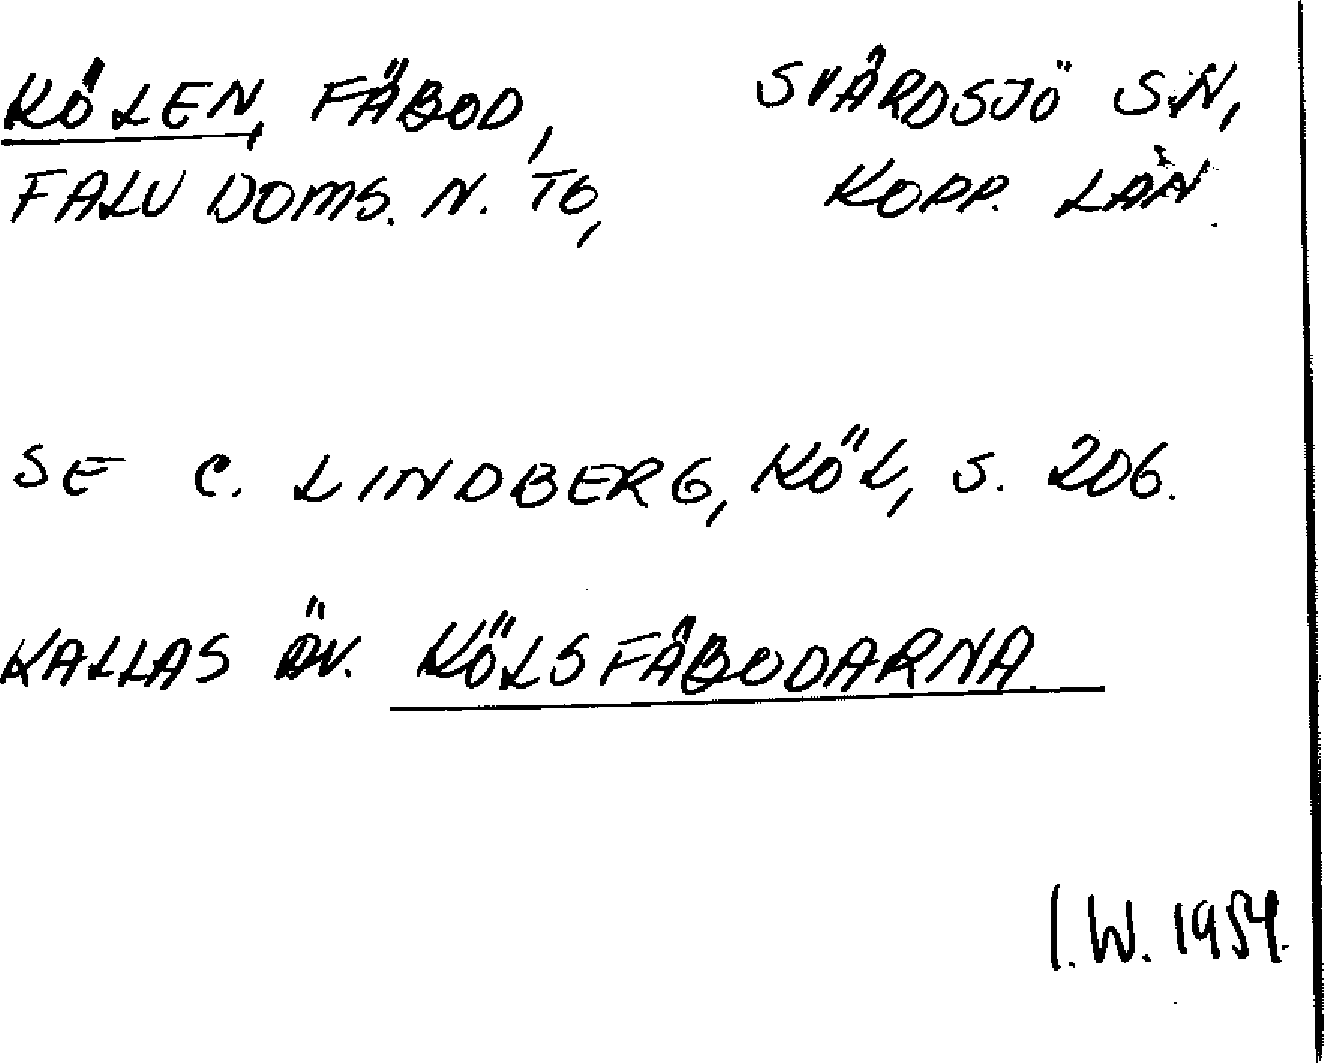 KÖLEN, FÄBOD, SVÄRDSJÖ SN,
FALU DOMS. N. TG, KOPP. LÄN.
SE C. LINDBERG, KÖL, S. 206.
KALLAS ÄV. KÖLSFÄBODARNA.
I.W. 1954.